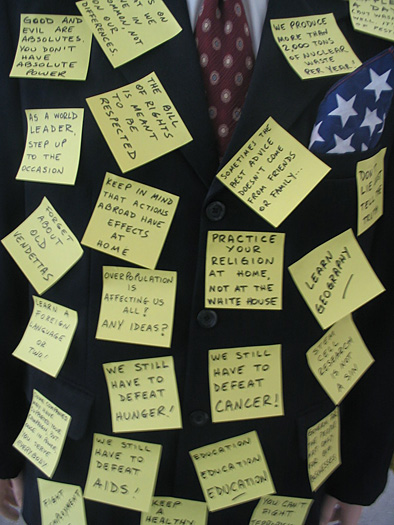 GOOD AND
EVIL ARE
ABSOLUTES.
YOU DON'T
HAVE
ABSOLUTE
POWER
ON
WE
IN NOT
ON OUR
DIFFERENCES.
WE PRODUCE
MORE THAN
2,000 TONS
OF NUCLEAR
WASTE
PER YEAR!
AS A WORLD
LEADER,
STEP UP
TO THE
OCCASION
THE BILL
OF RIGHTS
IS MEANT
TO BE
RESPECTED
SOMETIMES THE
BEST ADVICE
DOESN'T COME
FROM FRIENDS
OR FAMILY...
DON'T
LIE
TELL
THE
TRUTH
FORGET
ABOUT
OLD
VENDETTAS
KEEP IN MIND
THAT ACTIONS
ABROAD HAVE
EFFECTS
AT
HOME
PRACTICE
YOUR
RELIGION
AT HOME,
NOT AT THE
WHITE HOUSE
LEARN
GEOGRAPHY
LEARN A
FOREIGN
LANGUAGE
OR
TWO!
OVERPOPULATION
IS
AFFECTING US
ALL!
ANY IDEAS?
STEM
CELL
RESEARCH
IS NOT
A SIN
WE STILL
HAVE TO
DEFEAT
HUNGER!
WE STILL
HAVE TO
DEFEAT
CANCER!
YOU SERVE
EVERYBODY
WE STILL
HAVE TO
DEFEAT
AIDS!
EDUCATION
EDUCATION
EDUCATION
FIGHT
KEEP
A HEALTHY
YOU CAN'T
FIGHT